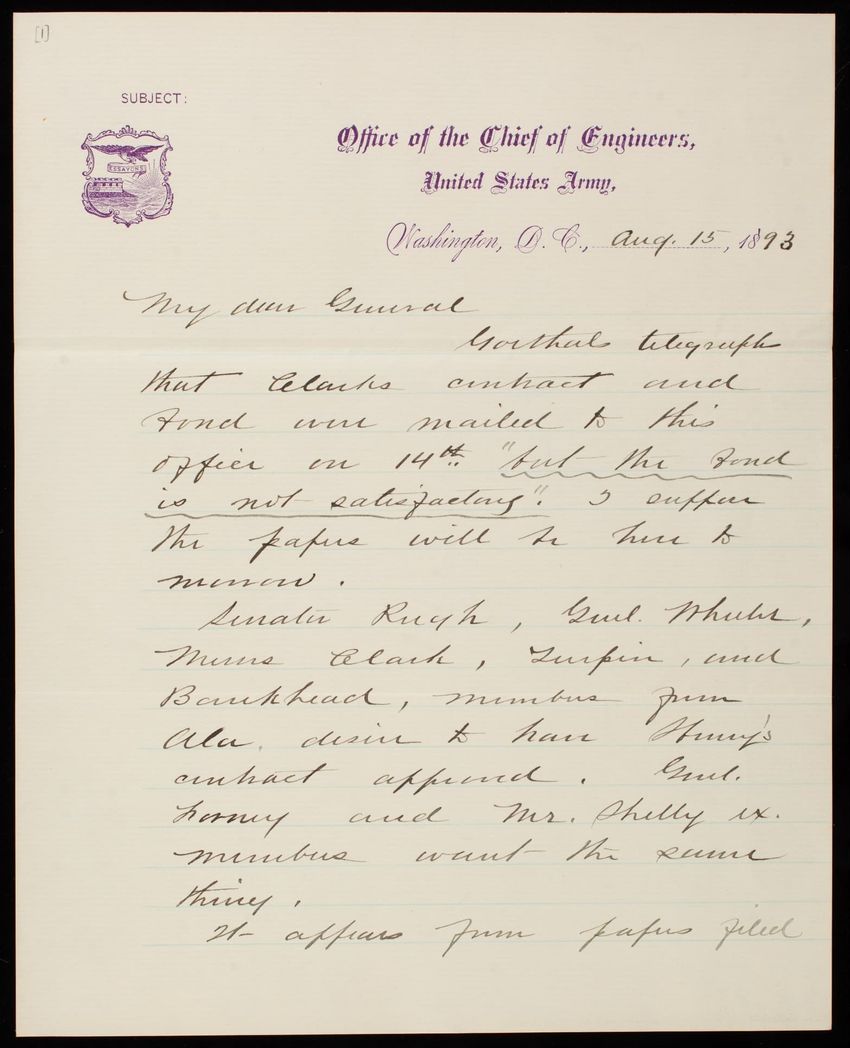 [1]
SUBJECT:
ESSAYONS
Office of the Chief of Engineers,
United States Army,
Washington, D. C., Aug. 15, 1893
My dear General
Goethals telegraphs
that Clarks contract and
bond were mailed to this
office on 14th. "but the bond
is not satisfactory". I suppose
the papers will be here to
morrow.
Senator Pugh, Genl. Wheeler,
Messrs Clark, Turpin, and
Bankhead, members from
Ala. desire to have Henry's
contract approved. Genl.
Forney and Mr. Shelly ex.
members want the same
thing.
It appears from papers filed